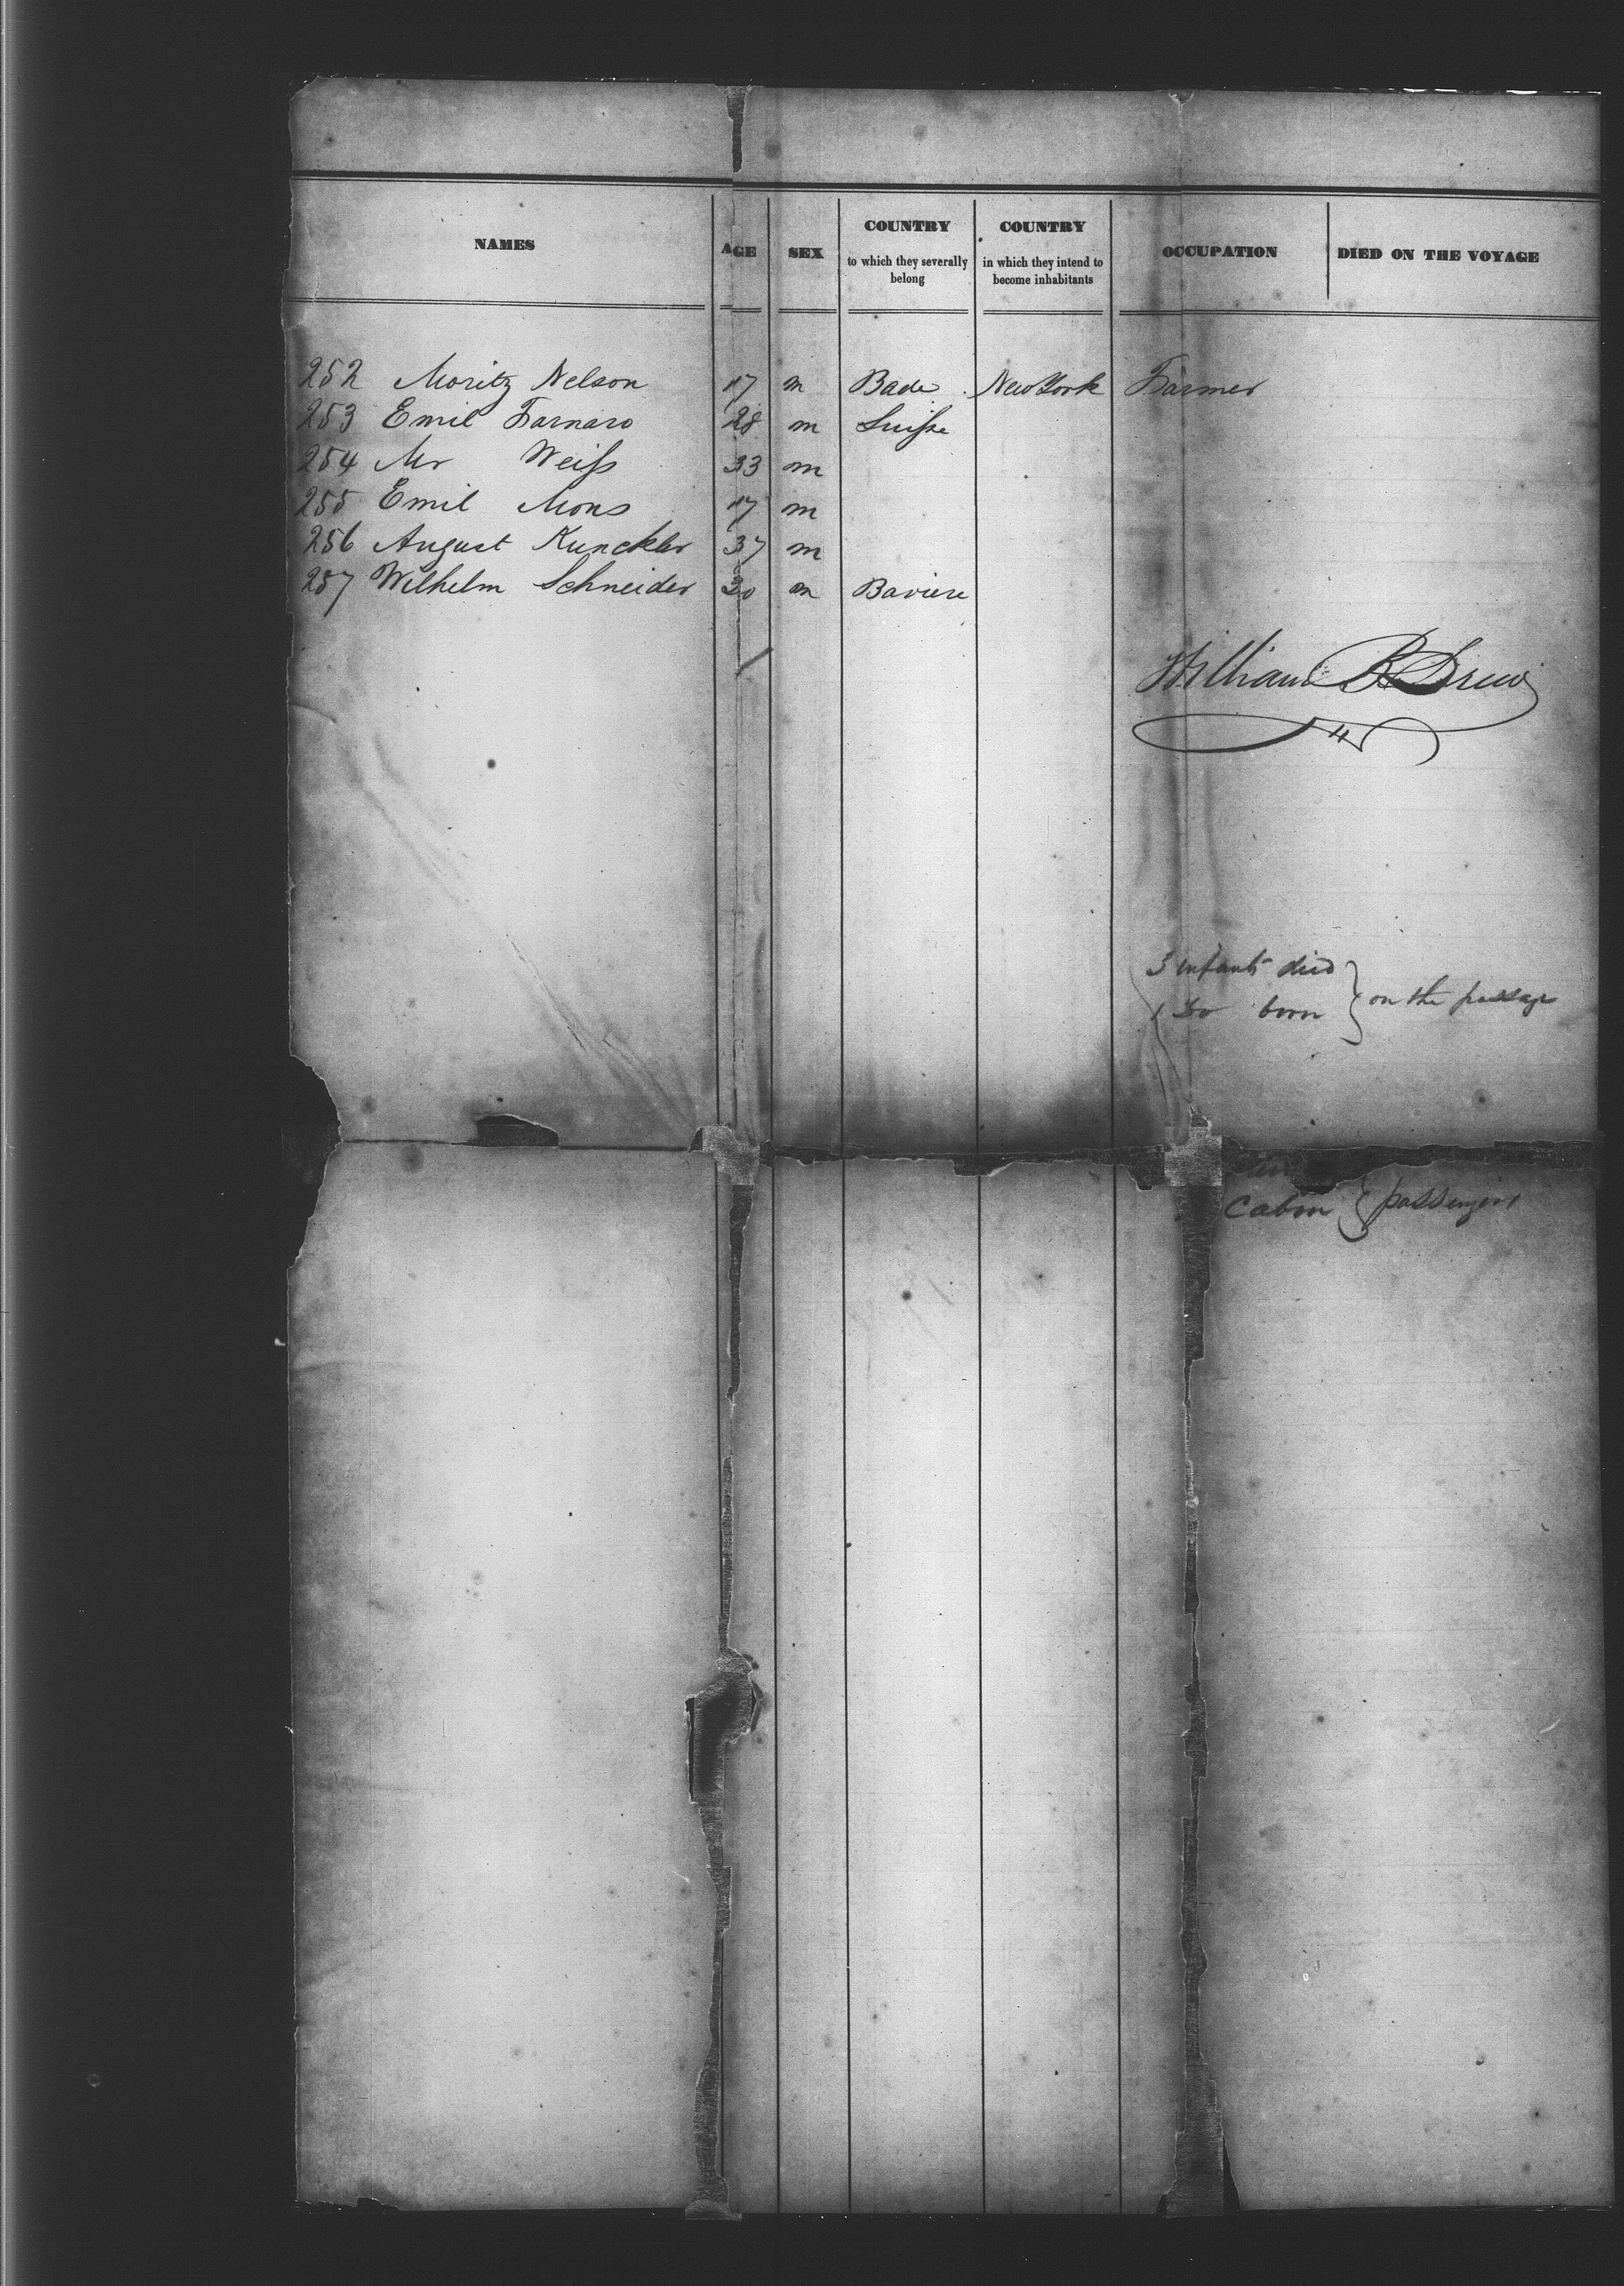 NAMES AGE SEX COUNTRY to which they severally belong COUNTRY in which they intend to become inhabitants OCCUPATION DIED ON THE VOYAGE
252 Moritz Nelson 17 m Bade New York Farmer
253 Emil Farnaro 28 m Suiſse
254 Mr Weiſs 33 m
255 Emil Mons 17 m
256 August Kunckler 37 m
257 Wilhelm Schneider 30 m Baviere
William B Drew
3 infants died
1 Do born } on the passage
Cabin } passengers